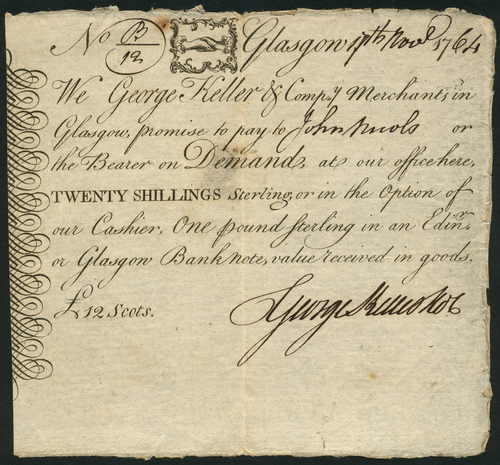 No B/12 Glasgow 17th Novr 1764
We George Keller & Compy Merchants in
Glasgow, promise to pay to John Nucols or
the Bearer on Demand, at our office here,
TWENTY SHILLINGS Sterling, or in the Option of
our Cashier, One pound Sterling in an Edinr
or Glasgow Bank note, value received in goods.
£12 Scots.
George Keller & Co